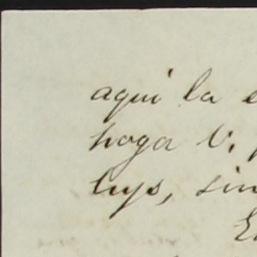 aqui la
hoga V.
luys, sin